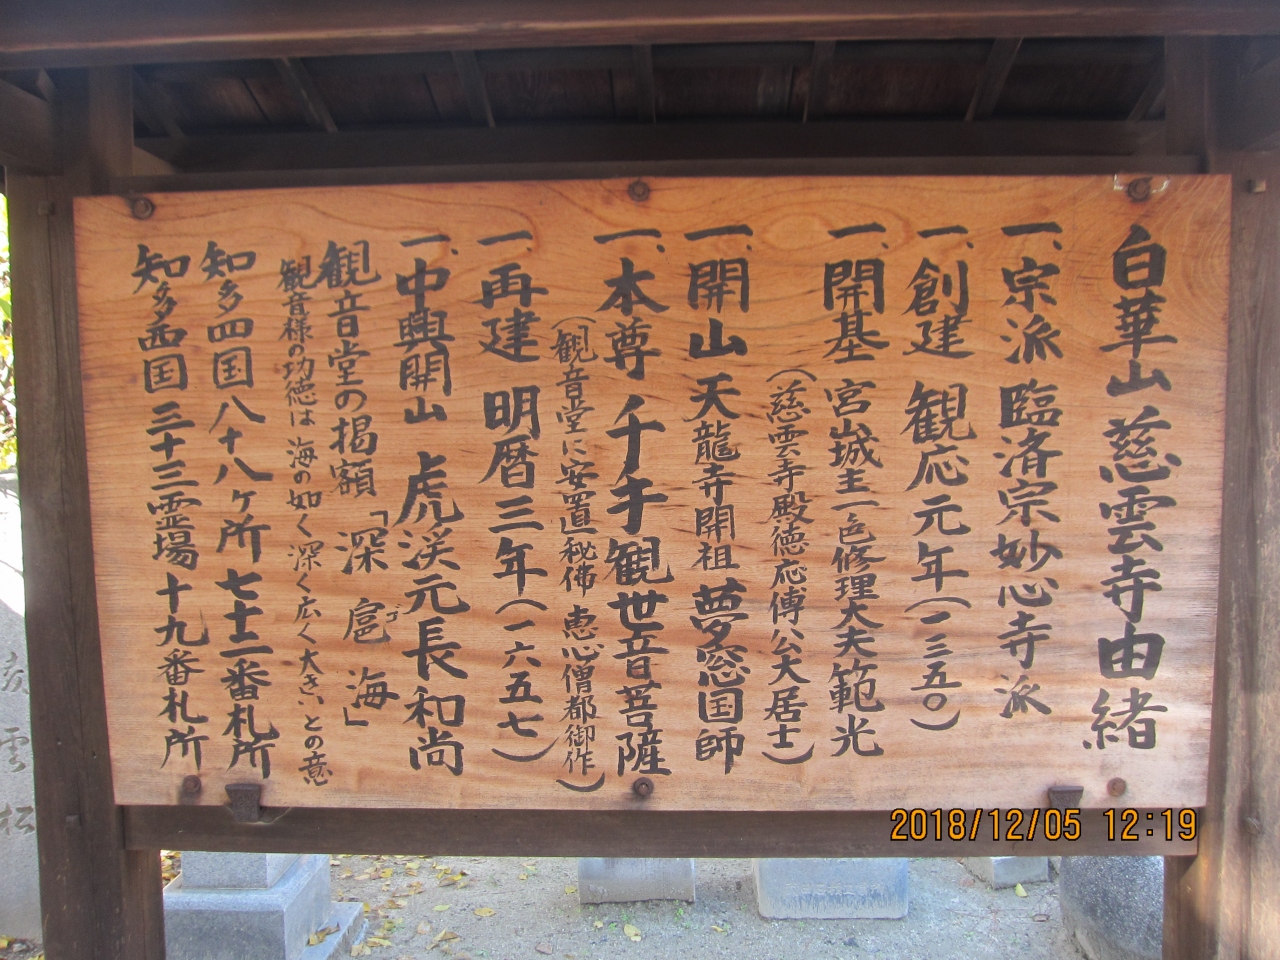 白華山慈雲寺由緒
一、宗派 臨済宗妙心寺派
一、創建 観応元年(一三五〇)
一、開基 宮山城主一色修理大夫範光
(慈雲寺殿徳応傅公大居士)
一、開山 天龍寺開祖 夢窓国師
一、本尊 千手観世音菩薩
(観音堂に安置秘佛 恵心僧都御作)
一、再建 明暦三年(一六五七)
一、中興開山 虎渓元長和尚
観音堂の掲額「深扈海」
ゴ
観音様の功徳は海の如く深く広く大きいとの意
知多四国八十八ヶ所 七十二番札所
知多西国 三十三霊場 十九番札所
2018/12/05 12:19